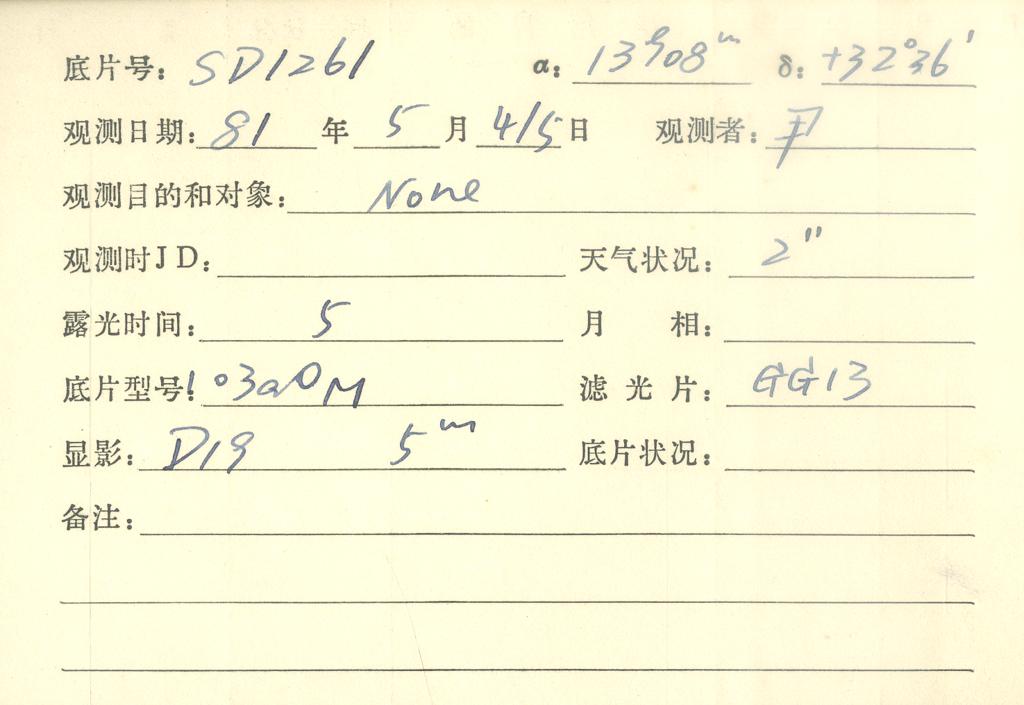 底片号: SD1261 α: 13h08m δ: +32°36′
观测日期: 81 年 5 月 4/5 日 观测者:
观测目的和对象: None
观测时JD: 天气状况: 2"
露光时间: 5 月 相:
底片型号: 103aO M 滤 光 片: GG13
显影: D19 5m 底片状况:
备注: